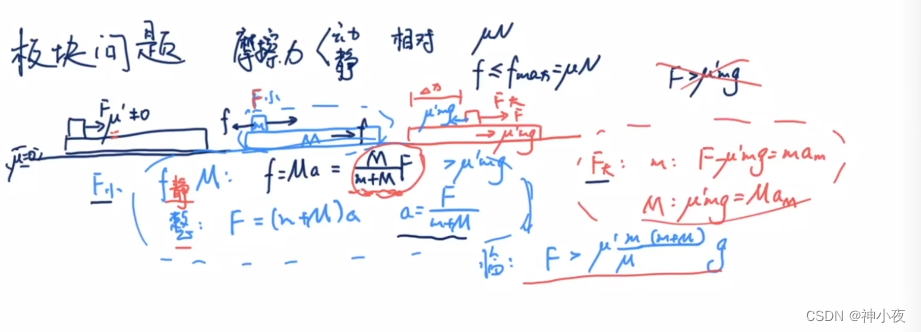 板块问题 摩擦力 动 相对 μN
静 f ≤ fmax = μN
F > μ'mg
F μ'≠0
μ=0
F小 f m M f
Δx μ'mg F大 F μ'mg
F小: f静 M: f = Ma = M/(m+M) F > μ'mg
整: F = (m+M)a a = F/(m+M)
F大: m: F - μ'mg = ma_m
M: μ'mg = Ma_M
临: F > μ' m(m+M)/M g
CSDN @神小夜